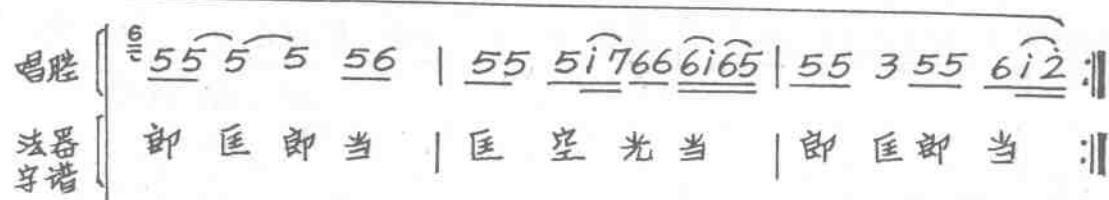 唱腔 6 55 5 5 56 | 55 5i766 6i65 | 55 3 55 6i2 :‖
法器字谱 郎 匡 郎 当 | 匡 空 光 当 | 郎 匡 郎 当 :‖